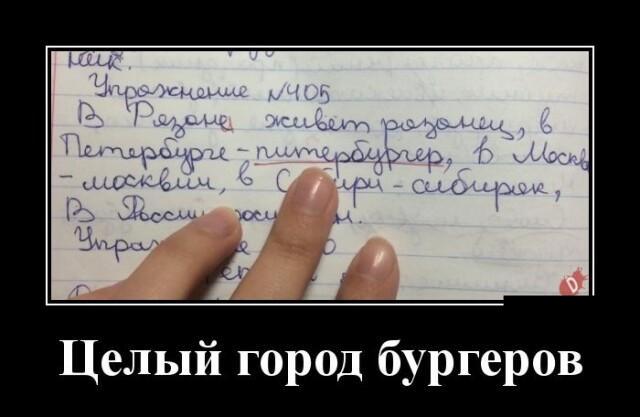 ник.
Упражнение №405
В Рязане живёт рязанец, в
Петербурге - питербургер, в Москв
- москвич, в С ири - сибиряк,
В России жи н.
Упра е 0
Целый город бургеров